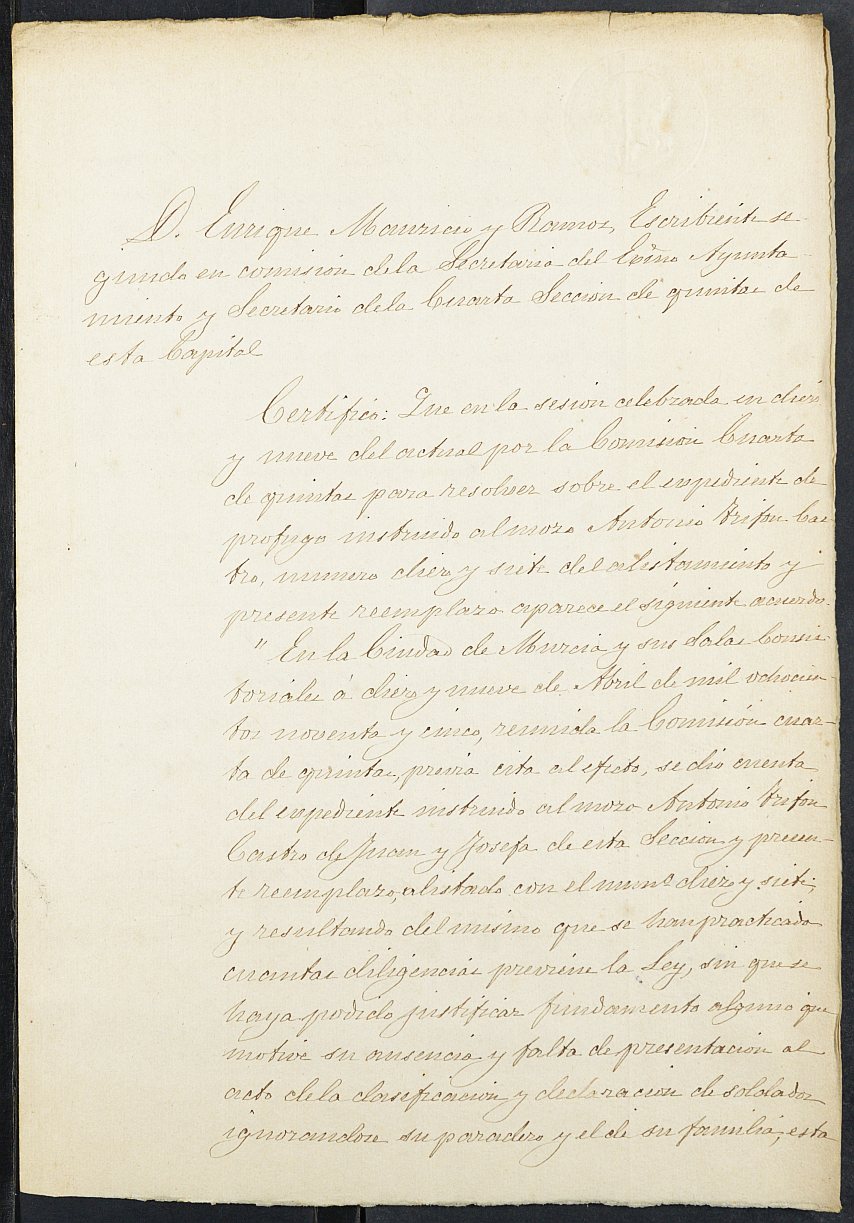 D. Enrique Mauricio y Ramos, Escribiente se-
gundo en comisión dela Secretaria del Exmo Ayunta-
miento y Secretario dela Cuarta Seccion de quintas de
esta Capital
Certifico: Que en la sesión celebrada en diez
y nueve del actual por la Comisión Cuarta
de quintas para resolver sobre el expediente de
profugo instruido al mozo Antonio Trifon Cas-
tro, numero diez y siete del alistamiento y
presente reemplazo aparece el siguiente acuerdo.
"En la Ciudad de Murcia y sus Salas Consis-
toriales á diez y nueve de Abril de mil ochocien-
tos noventa y cinco, reunida la Comisión cuar-
ta de quintas, previa cita al efecto, se dió cuenta
del expediente instruido al mozo Antonio Trifon
Castro de Juan y Josefa de esta Seccion y presen-
te reemplazo, alistado con el numº diez y siete,
y resultando del mismo que se han practicado
cuantas diligencias previene la Ley, sin que se
haya podido justificar fundamento alguno que
motive su ausencia y falta de presentacion al
acto dela clasificacion y declaracion de soldados
ignorandose su paradero y el de su familia, esta